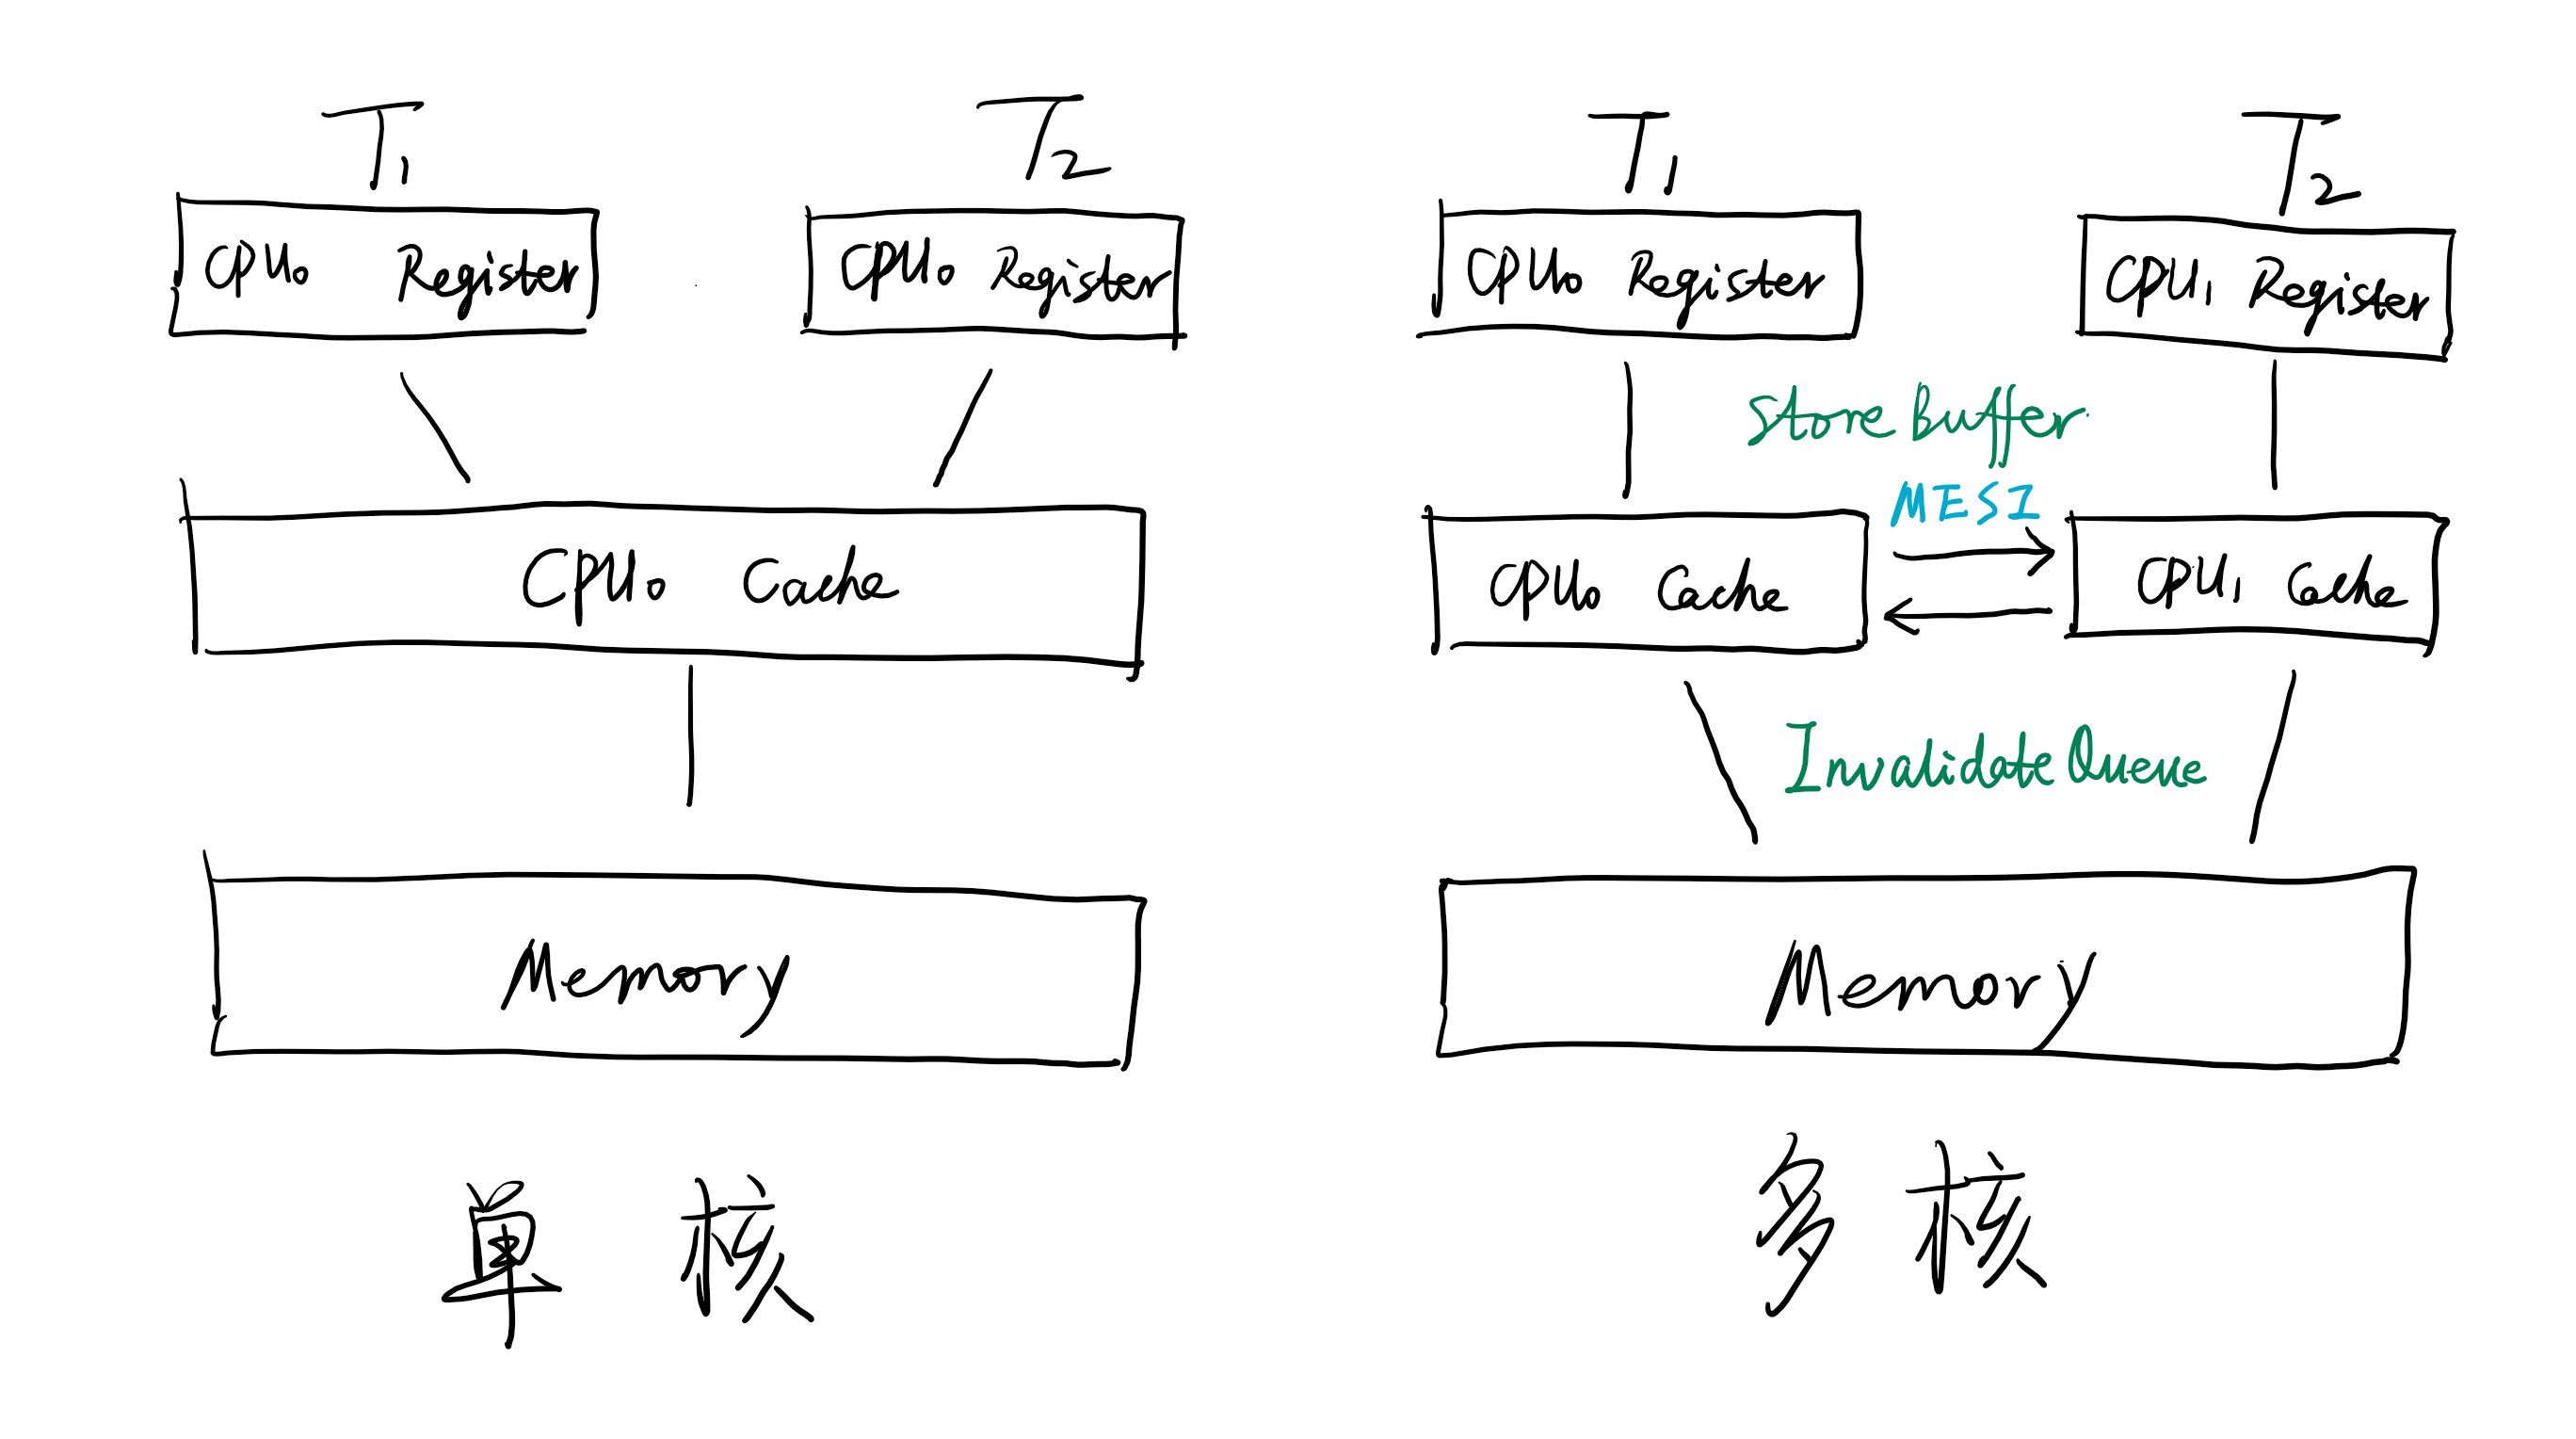 T1
T2
CPU0 Register
CPU0 Register
CPU0 Cache
Memory
单核
T1
T2
CPU0 Register
CPU1 Register
Store Buffer
MESI
CPU0 Cache
CPU1 Cache
Invalidate Queue
Memory
多核